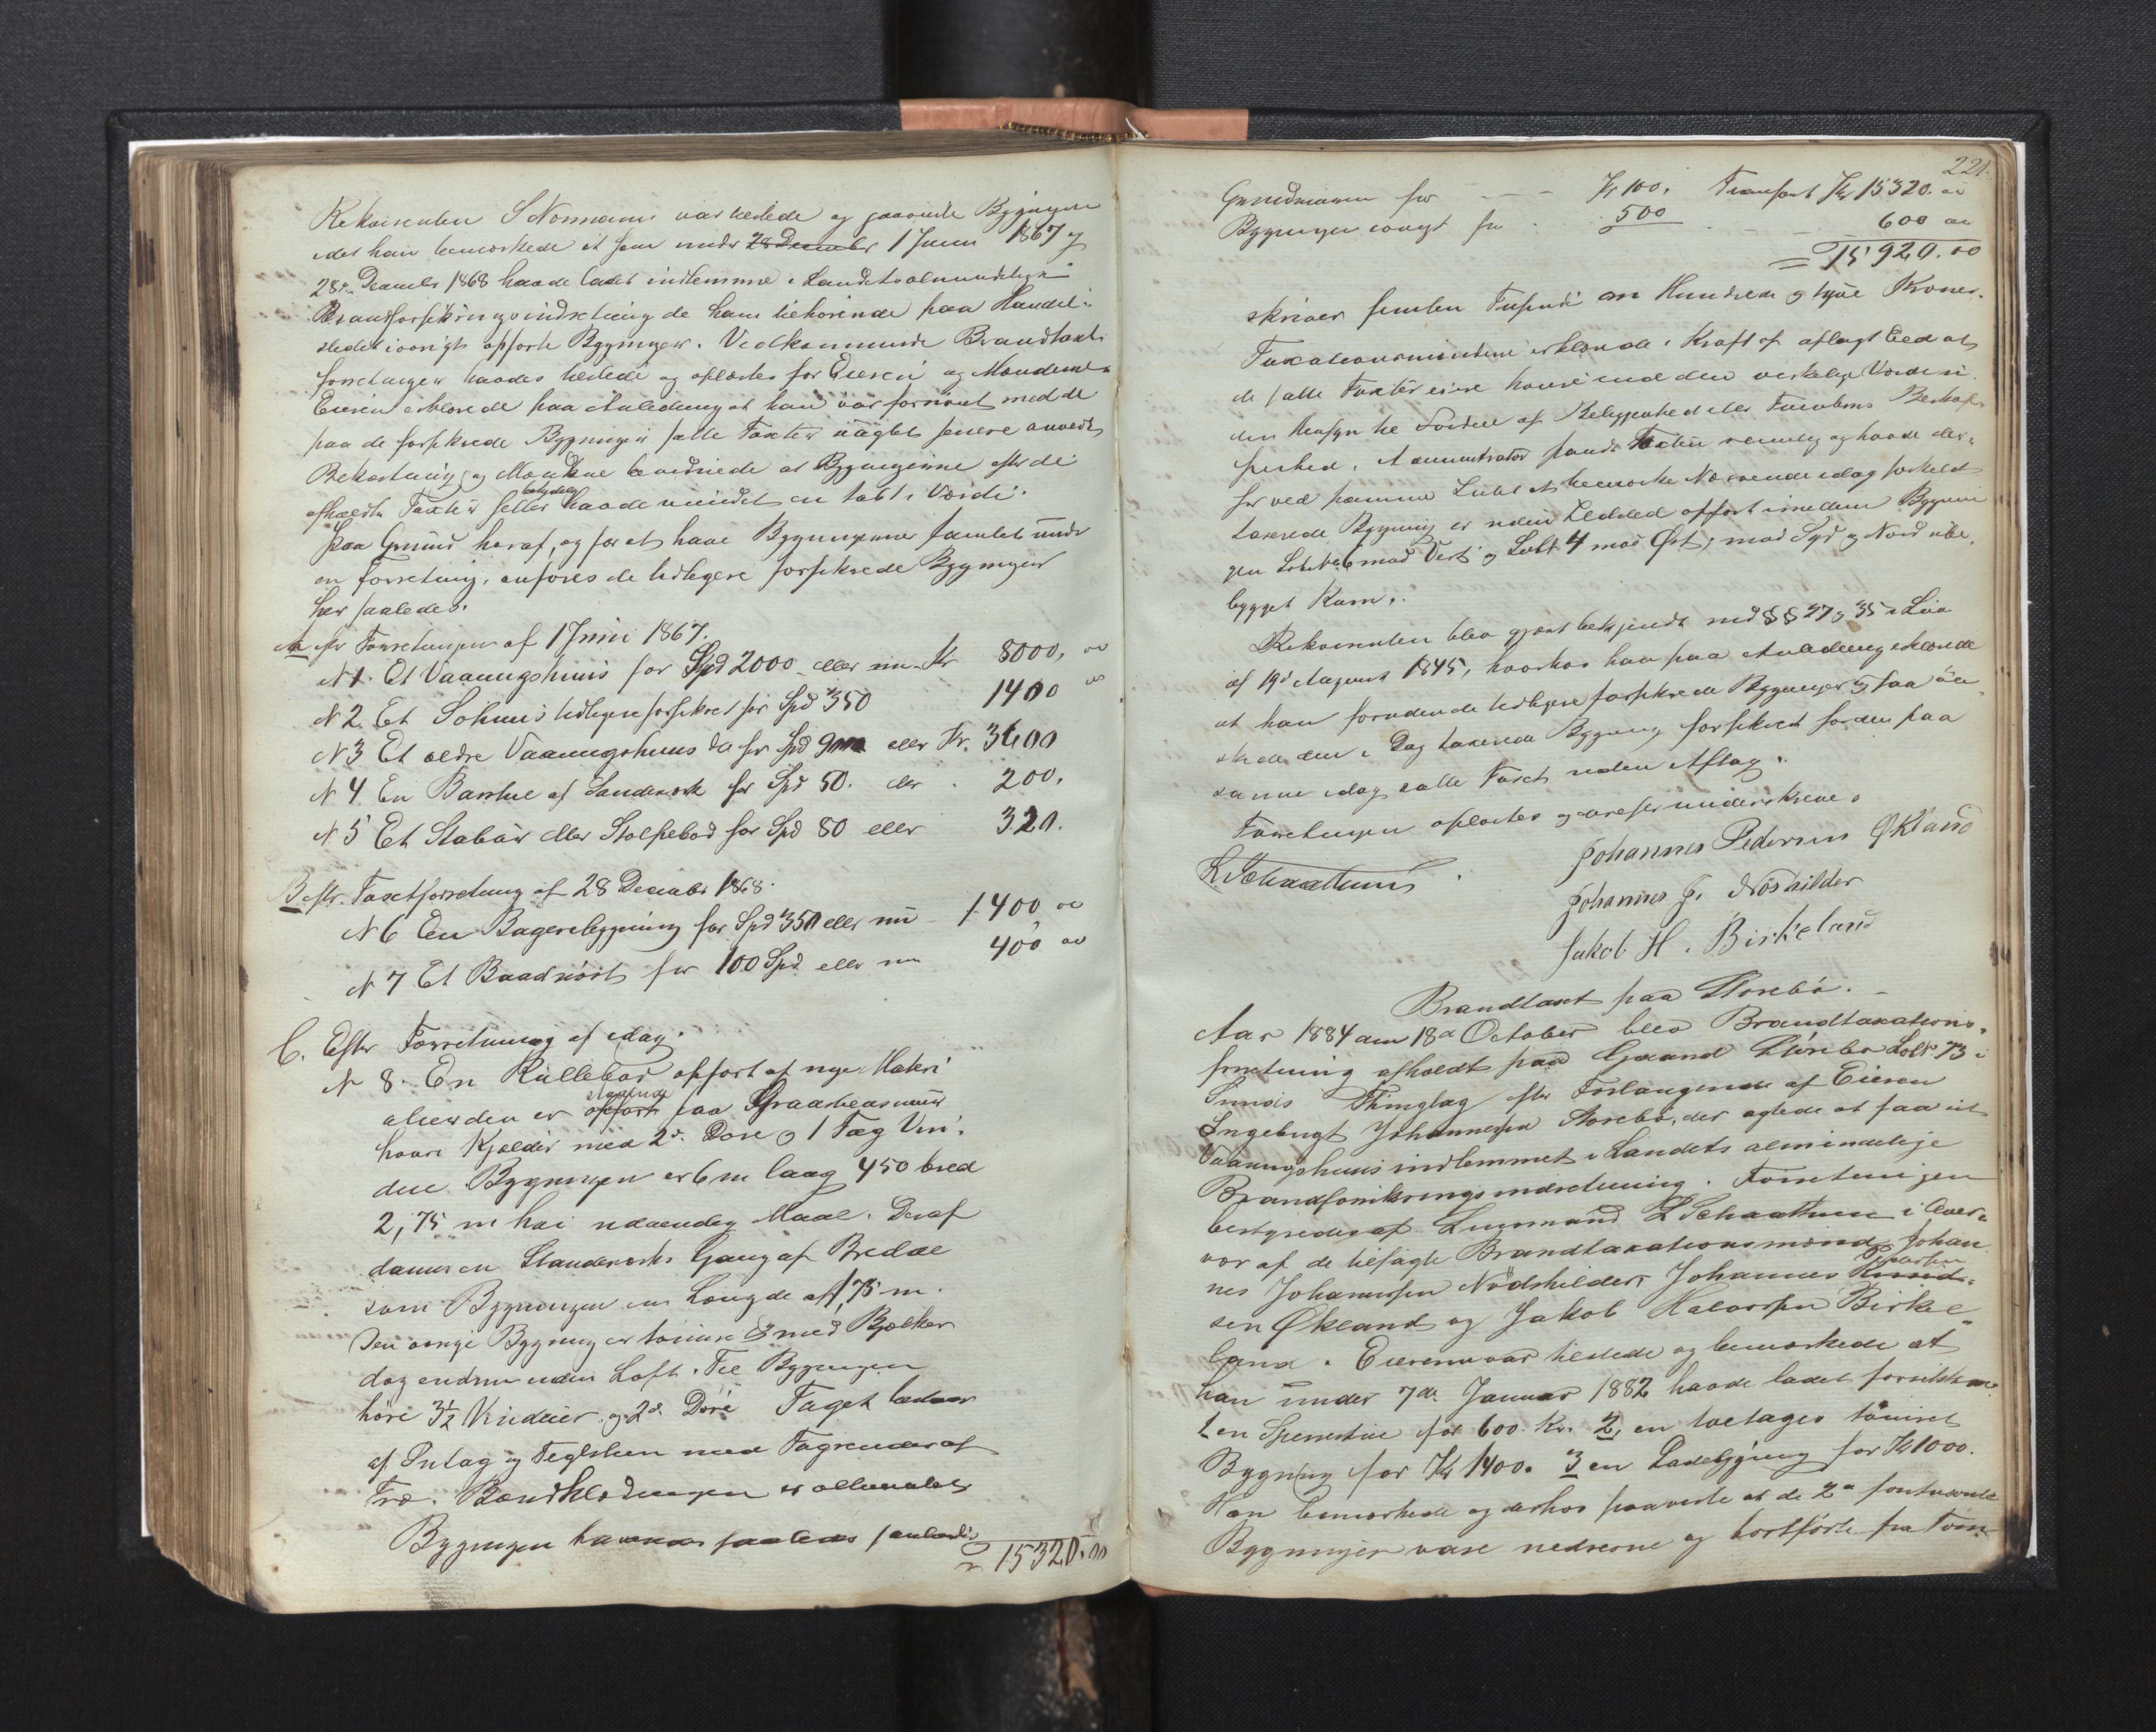 Rekvirenten S Normann var tilstede og paaviste Bygningen
idet han bemærkede at han under 28 December 1 Juni 1867 og
28de December 1868 havde ladet indlemme i Landets almindelige
Brandforsikringsindretning de ham tilhørende paa Handel-
stedet iøvrigt opførte Bygninger. Vedkommende Brandtaxt-
forretninger havdes tilstede og oplæstes for Eieren og Mændene.
Eieren erklærede paa Anledning at han var fornøiet med de
paa de forsikrede Bygninger satte Taxter uagtet senere anvendt
Bekostning og Mændene bevidnede at Bygningerne efter de
afholdte Taxter heller havde vundet en tabt i Værdi.
betydelig
Paa Grund heraf, og for at have Bygningerne samlet under
en Forretning, anføres de tidligere forsikrede Bygninger
her saaledes.
A efter Forretningen af 1 Juni 1867.
N 1. Et Vaaningshuus for Spd 2000 eller nu Kr 8000, 00
N 2. Et Søhuus tidligere forsikret for Spd 350 1400 00
N 3 Et ældre Vaaningshuus do for Spd 900 eller Kr. 3600
N 4 En Barstue af Standværk for Spd 50. eller 200.
N 5 Et Stabuur eller Stolpebod for Spd 80 eller 320.
B. eftr. Taxtforretning af 28 December 1868.
N 6 En Bageribygning for Spd 350 eller nu 1400 00
N 7 Et Baadnøst for 100 Spd eller nu 400 00
C. Efter Forretning af idag.
N 8. En Rullebod opført af nye Materi
alier den er opført paa Graasteensmuur
staaende
hvori Kjelder med 2de Døre og 1 Fag Vin.
due Bygningen er 6 m lang 4 50 bred
2,75 m høi udvendig Maal. Deraf
dannes en Standværks Gang af Bredde
som Bygningen en Længde af 1,75 m.
Den øvrige Bygning er tømret med Bjelker
dog endnu uden Loft. Til Bygningen
høre 3½ Vinduer og 2de Døre Taget bestaar
af Sutag og Teglsteen med Tagrender af
Træ. Bordklædningen er oliemalet
Bygningen
15320.00
221.
Grundmuren for — — Kr 100. Transport Kr 15320. 00
Bygningen iøvrigt for . 500 — — 600 00
= 15920.00
skriver femten Tusinde ni Hundrede og tyve Kroner.
Taxationsmændene erklærede i Kraft af aflagt Eed at
de satte Taxter ei ere høiere end den virkelige Værdi
uden Hensyn til Fordeel af Beliggenhed eller Tomtens Beskaf-
fenhed. Administrator fandt Taxten rimelig og havde der-
for ved samme Intet at bemærke Nærværende idag forhold
taxerede Bygning er uden Ildsted opført imellem Bygnin
gen Litra No 6 mod Vest og Litr 4 mod Øst, mod Syd og Nord ube-
bygget Rum.
Rekvirenten blev gjort bekjendt med §§ 27 og 35 i Lov
af 19de August 1845, hvorhos han paa Anledning erklærede
at han foruden de tidligere forsikrede Bygninger og saa øn-
skede den i Dag taxerede Bygning forsikret for den paa
samme idag satte Taxt uden Aftag.
Forretningen oplæstes og derefter underskreves
L Schaathun. Johannes Pedersen Økland
Johannes J. Nøshilder
Jakob H. Birkeland
Brandtaxt paa Storebø.
Aar 1884 den 18de October blev Brandtaxations-
forretning afholdt paa Gaard Storebø Løb No 73 i
Sunds Thinglag efter Forlangende af Eieren
Ingebrigt Johannessen Storebø, der agtede at faa sit
Vaaningshuus indlemmet i Landets almindelige
Brandforsikringsindretning. Forretningen
bestyredes af Lensmand L Schaathun i Over-
vær af de tilsagte Brandtaxationsmænd, Johan
nes Johannessen Nødshilder, Johannes Knud-
Peder
sen Økland og Jakob Halvorsen Birke-
land. Eieren var tilstede og bemærkede at
han under 7de Januar 1882 havde ladet forsikkre
1 en for 600 Kr. 2, en toetages tømret
Bygning for Kr 1400. 3 en Ladebygning for Kr 1000.
Han bemærkede og derhos paaviste at de 2de førstnævnte
Bygninger vare nedrevne og bortførte fra Tom-